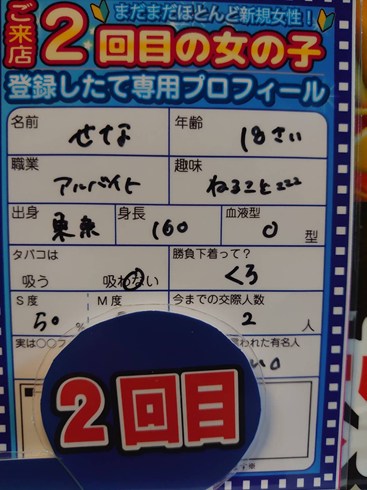 まだまだほとんど新規女性！
ご来店
2回目の女の子
登録したて専用プロフィール
名前 せな 年齢 18さい
職業 アルバイト 趣味 ねることzzz
出身 東京 身長 160 血液型 O 型
タバコは 勝負下着って？
吸う 吸わない くろ
S度 M度 今までの交際人数
50 % 2 人
実は〇〇フ 言われた有名人
2回目